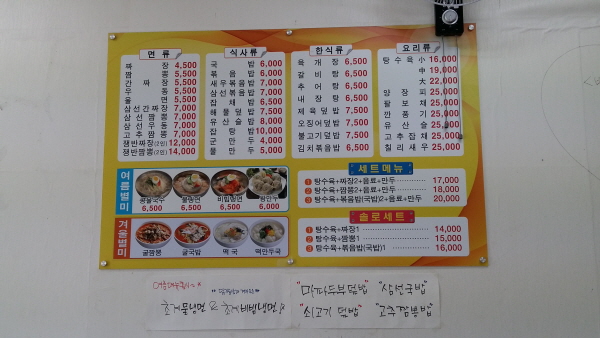 면 류
짜 장 4,500
짬 뽕 5,500
간 짜 장 5,500
우 동 5,500
울 면 5,500
삼선간짜장 7,000
삼선짬뽕 7,000
삼선우동 7,000
고추짬뽕 7,000
쟁반짜장(2인) 12,000
쟁반짬뽕(2인) 14,000
식 사 류
국 밥 6,000
볶 음 밥 6,000
새우볶음밥 7,000
삼선볶음밥 7,000
잡 채 밥 6,500
해물덮밥 7,500
유산슬밥 8,000
잡 탕 밥 10,000
군 만 두 4,000
물 만 두 5,000
한 식 류
육 개 장 6,500
갈 비 탕 6,500
추 어 탕 6,500
내 장 탕 6,500
제육덮밥 7,500
오징어덮밥 7,500
불고기덮밥 7,500
김치볶음밥 6,500
요 리 류
탕 수 육 小 16,000
中 19,000
大 22,000
양 장 피 25,000
팔 보 채 25,000
깐 풍 기 25,000
유 산 슬 25,000
고추잡채 25,000
칠리새우 25,000
여름별미
콩물국수 6,500
물냉면 6,500
비빔냉면 6,500
왕만두 6,000
겨울별미
굴짬뽕
굴국밥
떡 국
떡만두국
세트메뉴
① 탕수육+짜장2+음료+만두 17,000
② 탕수육+짬뽕2+음료+만두 18,000
③ 탕수육+볶음밥(국밥)2+음료+만두 20,000
솔로세트
① 탕수육+짜장1 14,000
② 탕수육+짬뽕1 15,000
③ 탕수육+볶음밥(국밥)1 16,000
초계물냉면 & 초계비빔냉면
"마파두부덮밥" "삼선국밥"
"쇠고기 덮밥" "고추짬뽕밥"